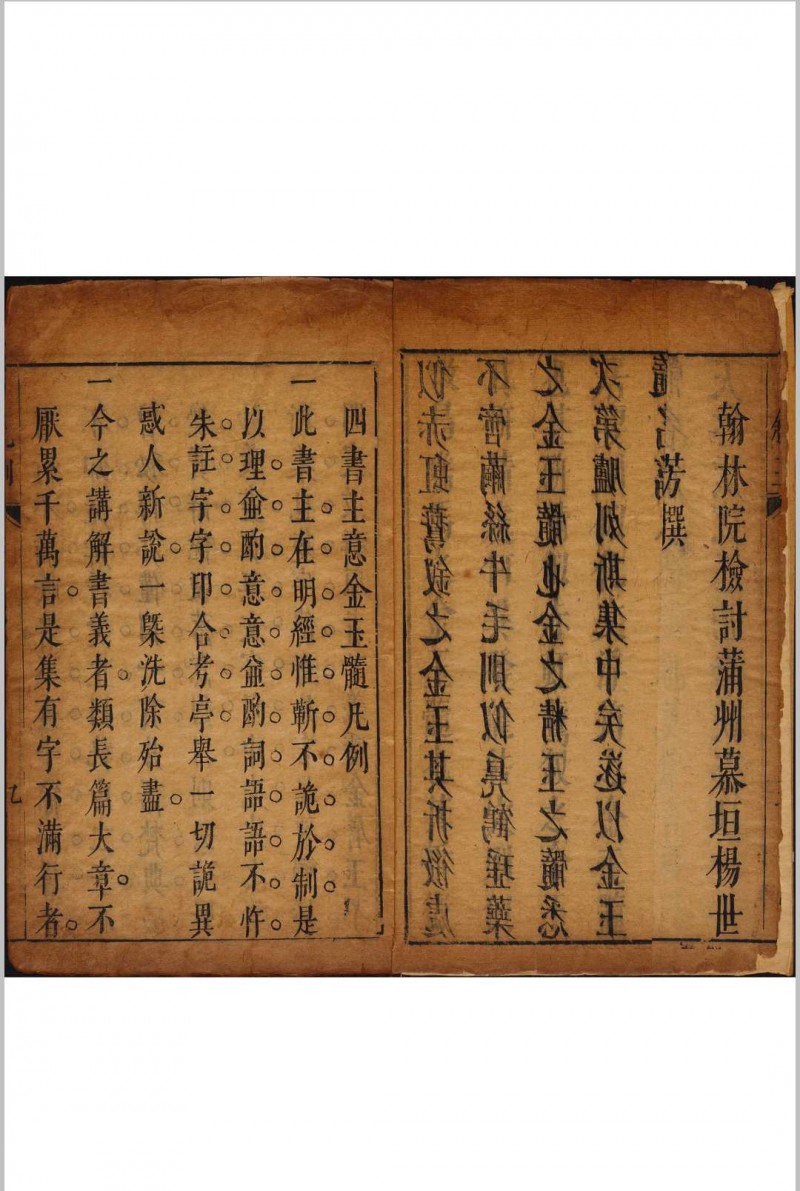 翰林院檢討蒲州慕垣楊世
芳撰
髓名
次第臚列斯集中矣遂以金玉
之金玉髓也金之精玉之髓悉
不啻繭絲牛毛則似鳧鶴
似赤虹之金玉其析微處
四書主意金玉髓凡例
一此書主在明經惟蘄不詭於制是
以理僉酌意意僉酌詞語語不忤
朱註字字印合考亭舉一切詭異
惑人新說一槩洗除殆盡
一今之講解書義者類長篇大章不
厭累千萬言是集有字不滿行者